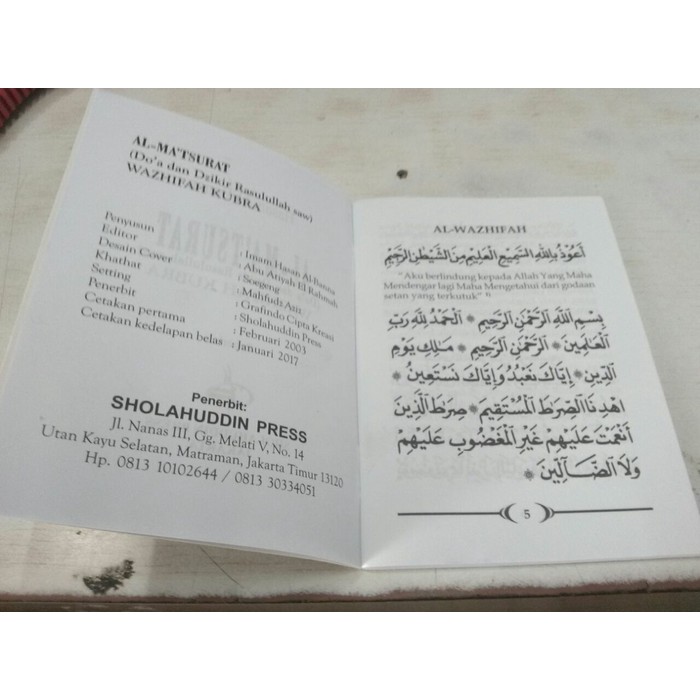 AL-MA'TSURAT
(Do'a dan Dzikir Rasulullah saw)
WAZHIFAH KUBRA
Penyusun : Imam Hasan Al-Banna
Editor : Abu Atiyah El Rahmah
Desain Cover : Soegeng
Khathat : Mahfudz Aziz
Setting : Grafindo Cipta Kreasi
Penerbit : Sholahuddin Press
Cetakan pertama : Februari 2003
Cetakan kedelapan belas : Januari 2017
Penerbit:
SHOLAHUDDIN PRESS
Jl. Nanas III, Gg. Melati V, No. 14
Utan Kayu Selatan, Matraman, Jakarta Timur 13120
Hp. 0813 10102644 / 0813 30334051
AL-WAZHIFAH
أَعُوْذُ بِاللّٰهِ السَّمِيْعِ الْعَلِيْمِ مِنَ الشَّيْطٰنِ الرَّجِيْمِ
"Aku berlindung kepada Allah Yang Maha
Mendengar lagi Maha Mengetahui dari godaan
setan yang terkutuk"
بِسْمِ اللّٰهِ الرَّحْمٰنِ الرَّحِيْمِ * اَلْحَمْدُ لِلّٰهِ رَبِّ
الْعَالَمِيْنَ * اَلرَّحْمٰنِ الرَّحِيْمِ * مَالِكِ يَوْمِ
الدِّيْنِ * إِيَّاكَ نَعْبُدُ وَإِيَّاكَ نَسْتَعِيْنُ *
اِهْدِنَا الصِّرَاطَ الْمُسْتَقِيْمَ * صِرَاطَ الَّذِيْنَ
أَنْعَمْتَ عَلَيْهِمْ غَيْرِ الْمَغْضُوْبِ عَلَيْهِمْ
وَلَا الضَّالِّيْنَ *
5